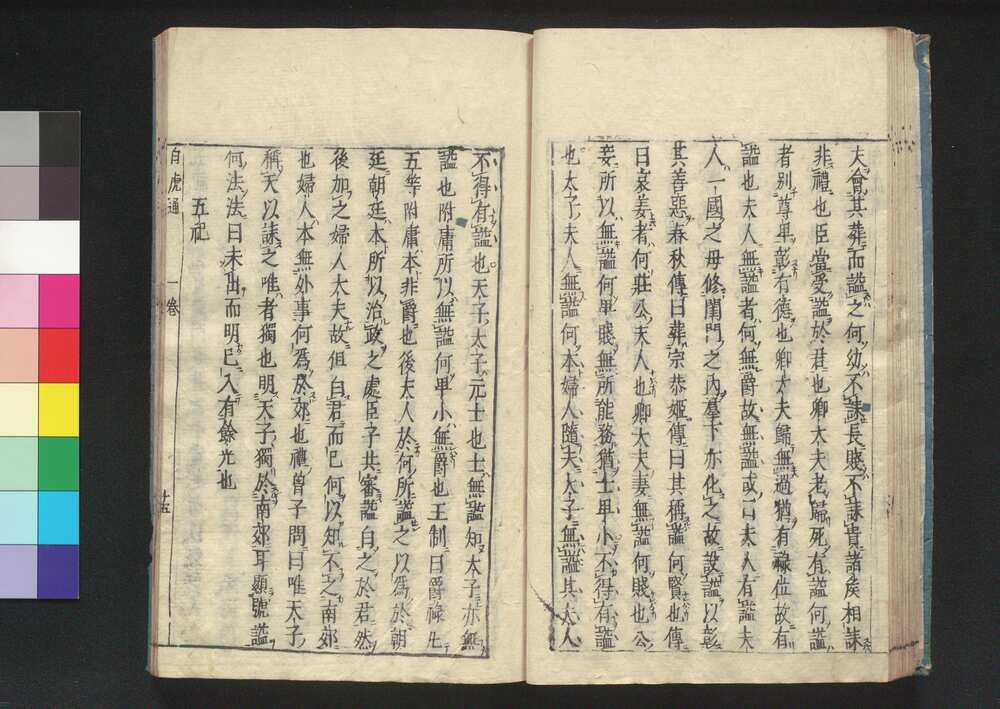 大會其葬而諡之何幼不誄長賤不誄貴諸矦相誄
非禮也臣當受諡於君也卿大夫老歸死有諡何諡
者別尊卑彰有德也卿大夫歸無過猶有祿位故有
諡也夫人無諡者何無爵故無諡或曰夫人有諡夫
人一國之母修閨門之内羣下亦化之故設諡以彰
其善惡春秋傳曰葬宗恭姬傳曰其稱諡何賢也傳
曰哀姜者何莊公夫人也卿大夫妻無諡何賤也公
妾所以無諡何卑賤無所能務猶士卑小不得有諡
也太子夫人無諡何本婦人隨夫太子無諡其夫人
不得有諡也天子太子元士也士無諡知太子亦無
諡也附庸所以無諡何卑小無爵也王制曰爵祿凡
五等附庸本非爵也後夫人於何所諡之以爲於朝
廷朝廷本所以治政之處臣子共審諡白之於君然
後加之婦人大夫故但白君而已何以知不之南郊
也婦人本無外事何爲於郊也禮曾子問曰唯天子
稱天以誄之唯者獨也明天子獨於南郊耳顯號諡
何法法曰未出而明已入有餘光也
五祀
白虎通 一卷 十五